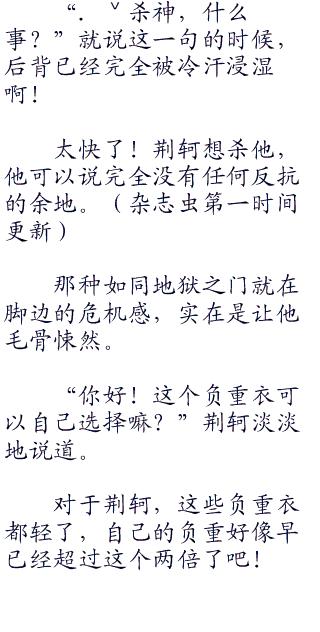 “．ˇ杀神，什么
事？”就说这一句的时候，
后背已经完全被冷汗浸湿
啊！
太快了！荆轲想杀他，
他可以说完全没有任何反抗
的余地。（杂志虫第一时间
更新）
那种如同地狱之门就在
脚边的危机感，实在是让他
毛骨悚然。
“你好！这个负重衣可
以自己选择嘛？”荆轲淡淡
地说道。
对于荆轲，这些负重衣
都轻了，自己的负重好像早
已经超过这个两倍了吧！